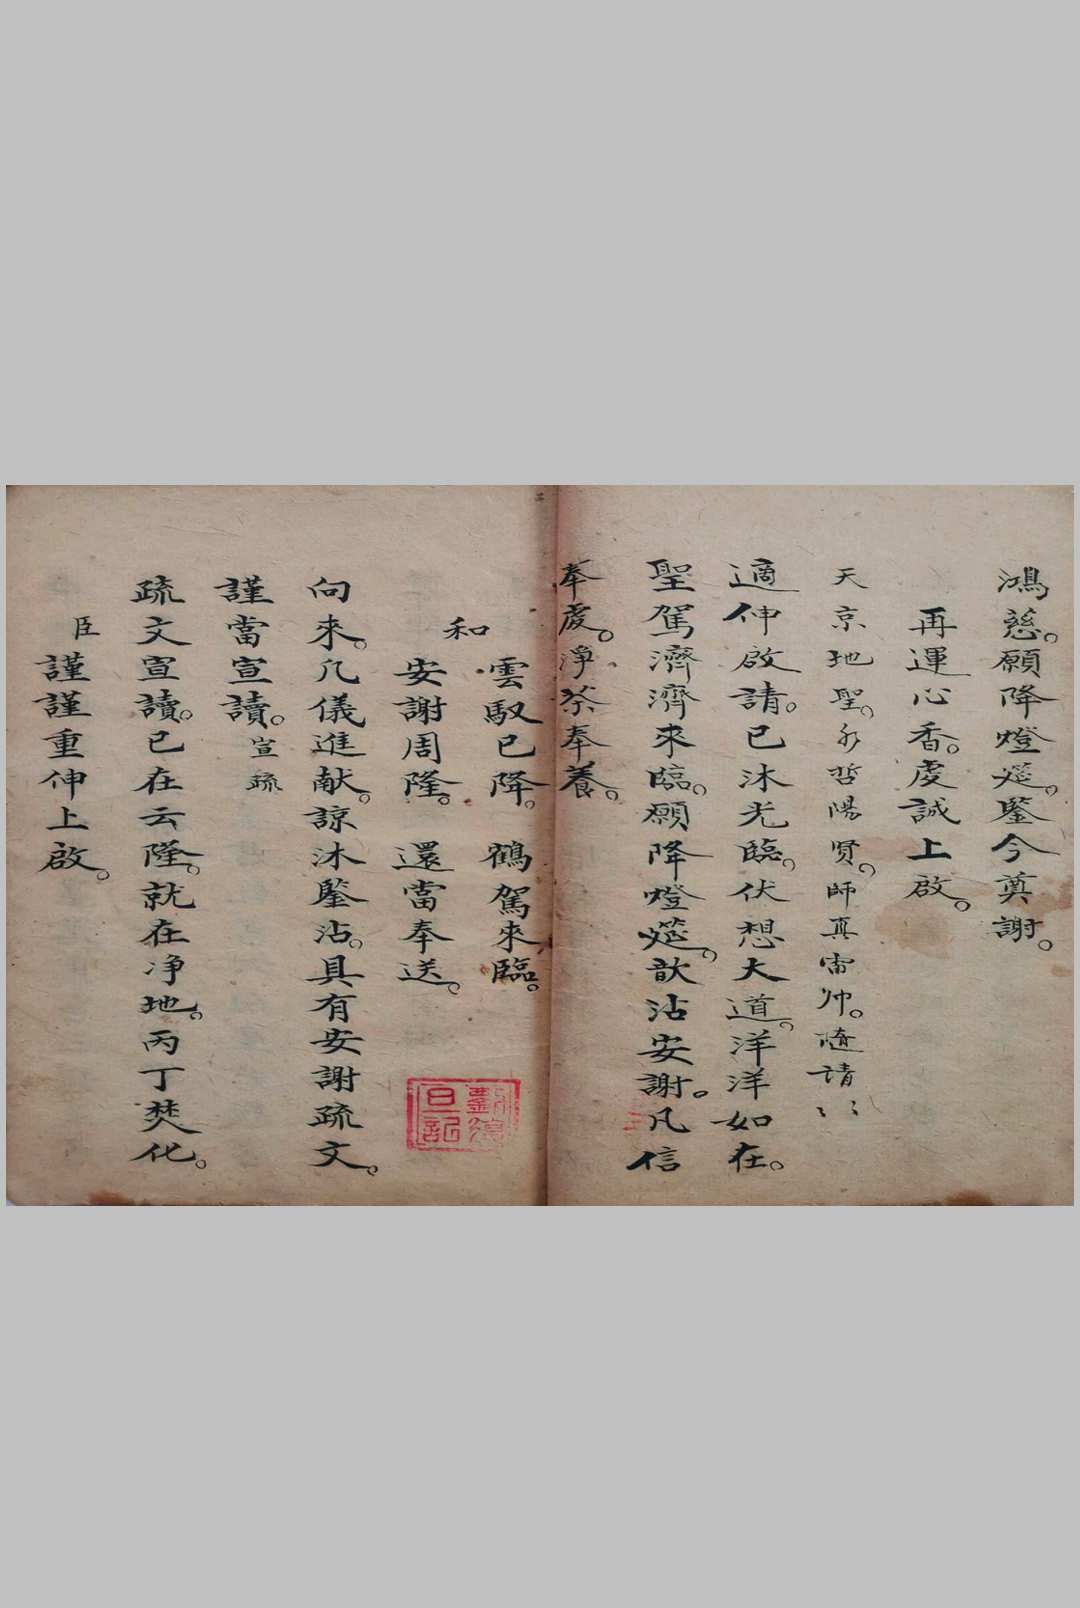 鴻慈。願降燈筵。鑒今奠謝。
再運心香。虔誠上啟。
天京地聖。水哲陽賢。師真雷帅。隨請
適伸啟請。已沐光臨。伏想大道。洋洋如在。
聖駕濟濟來臨。願降燈筵。歆沾安謝。凡信
奉虔。淨茶奉養。
雲馭已降。鶴駕來臨。
和
安謝周隆。還當奉送。
向來。凡儀進献。諒沐鑒沾。具有安謝疏文。
謹當宣讀。宣疏
疏文宣讀。已在云隆。就在净地。丙丁焚化。
臣
謹謹重伸上啟。